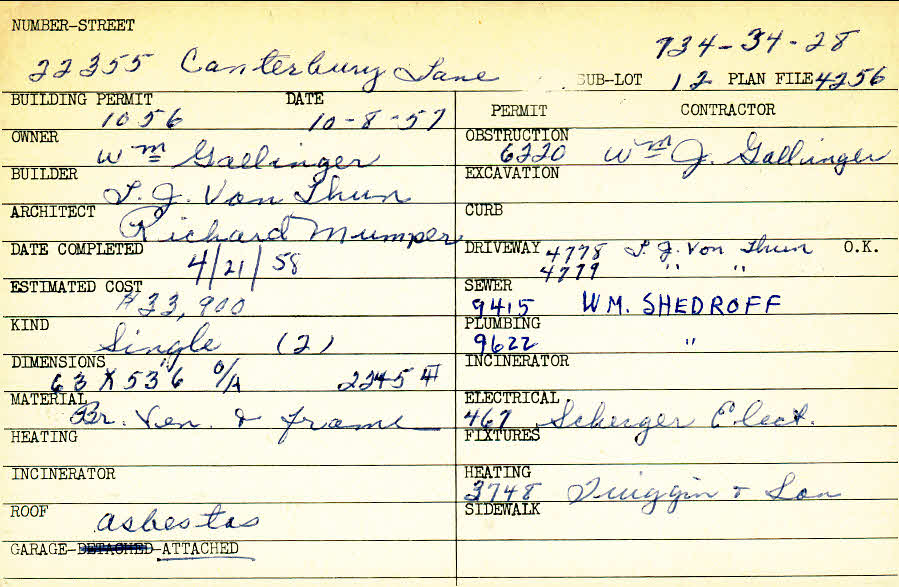 NUMBER-STREET
734-34-28
22355 Canterbury Lane SUB-LOT 12 PLAN FILE 4256
BUILDING PERMIT DATE
1056 10-8-57
OWNER
Wm Gallinger
BUILDER
T. J. Von Thun
ARCHITECT
Richard Mumper
DATE COMPLETED
4/21/58
ESTIMATED COST
$33,900
KIND
Single (2)
DIMENSIONS
63 X 53'6" O/A 2245
MATERIAL
Br. Ven. & frame
HEATING
INCINERATOR
ROOF
asbestos
GARAGE-DETACHED-ATTACHED
PERMIT CONTRACTOR
OBSTRUCTION
6220 Wm J. Gallinger
EXCAVATION
CURB
DRIVEWAY 4778 T. J. Von Thun O.K.
4779 " "
SEWER
9415 WM. SHEDROFF
PLUMBING
9622 "
INCINERATOR
ELECTRICAL
467 Elect.
FIXTURES
HEATING
3748 & Son
SIDEWALK